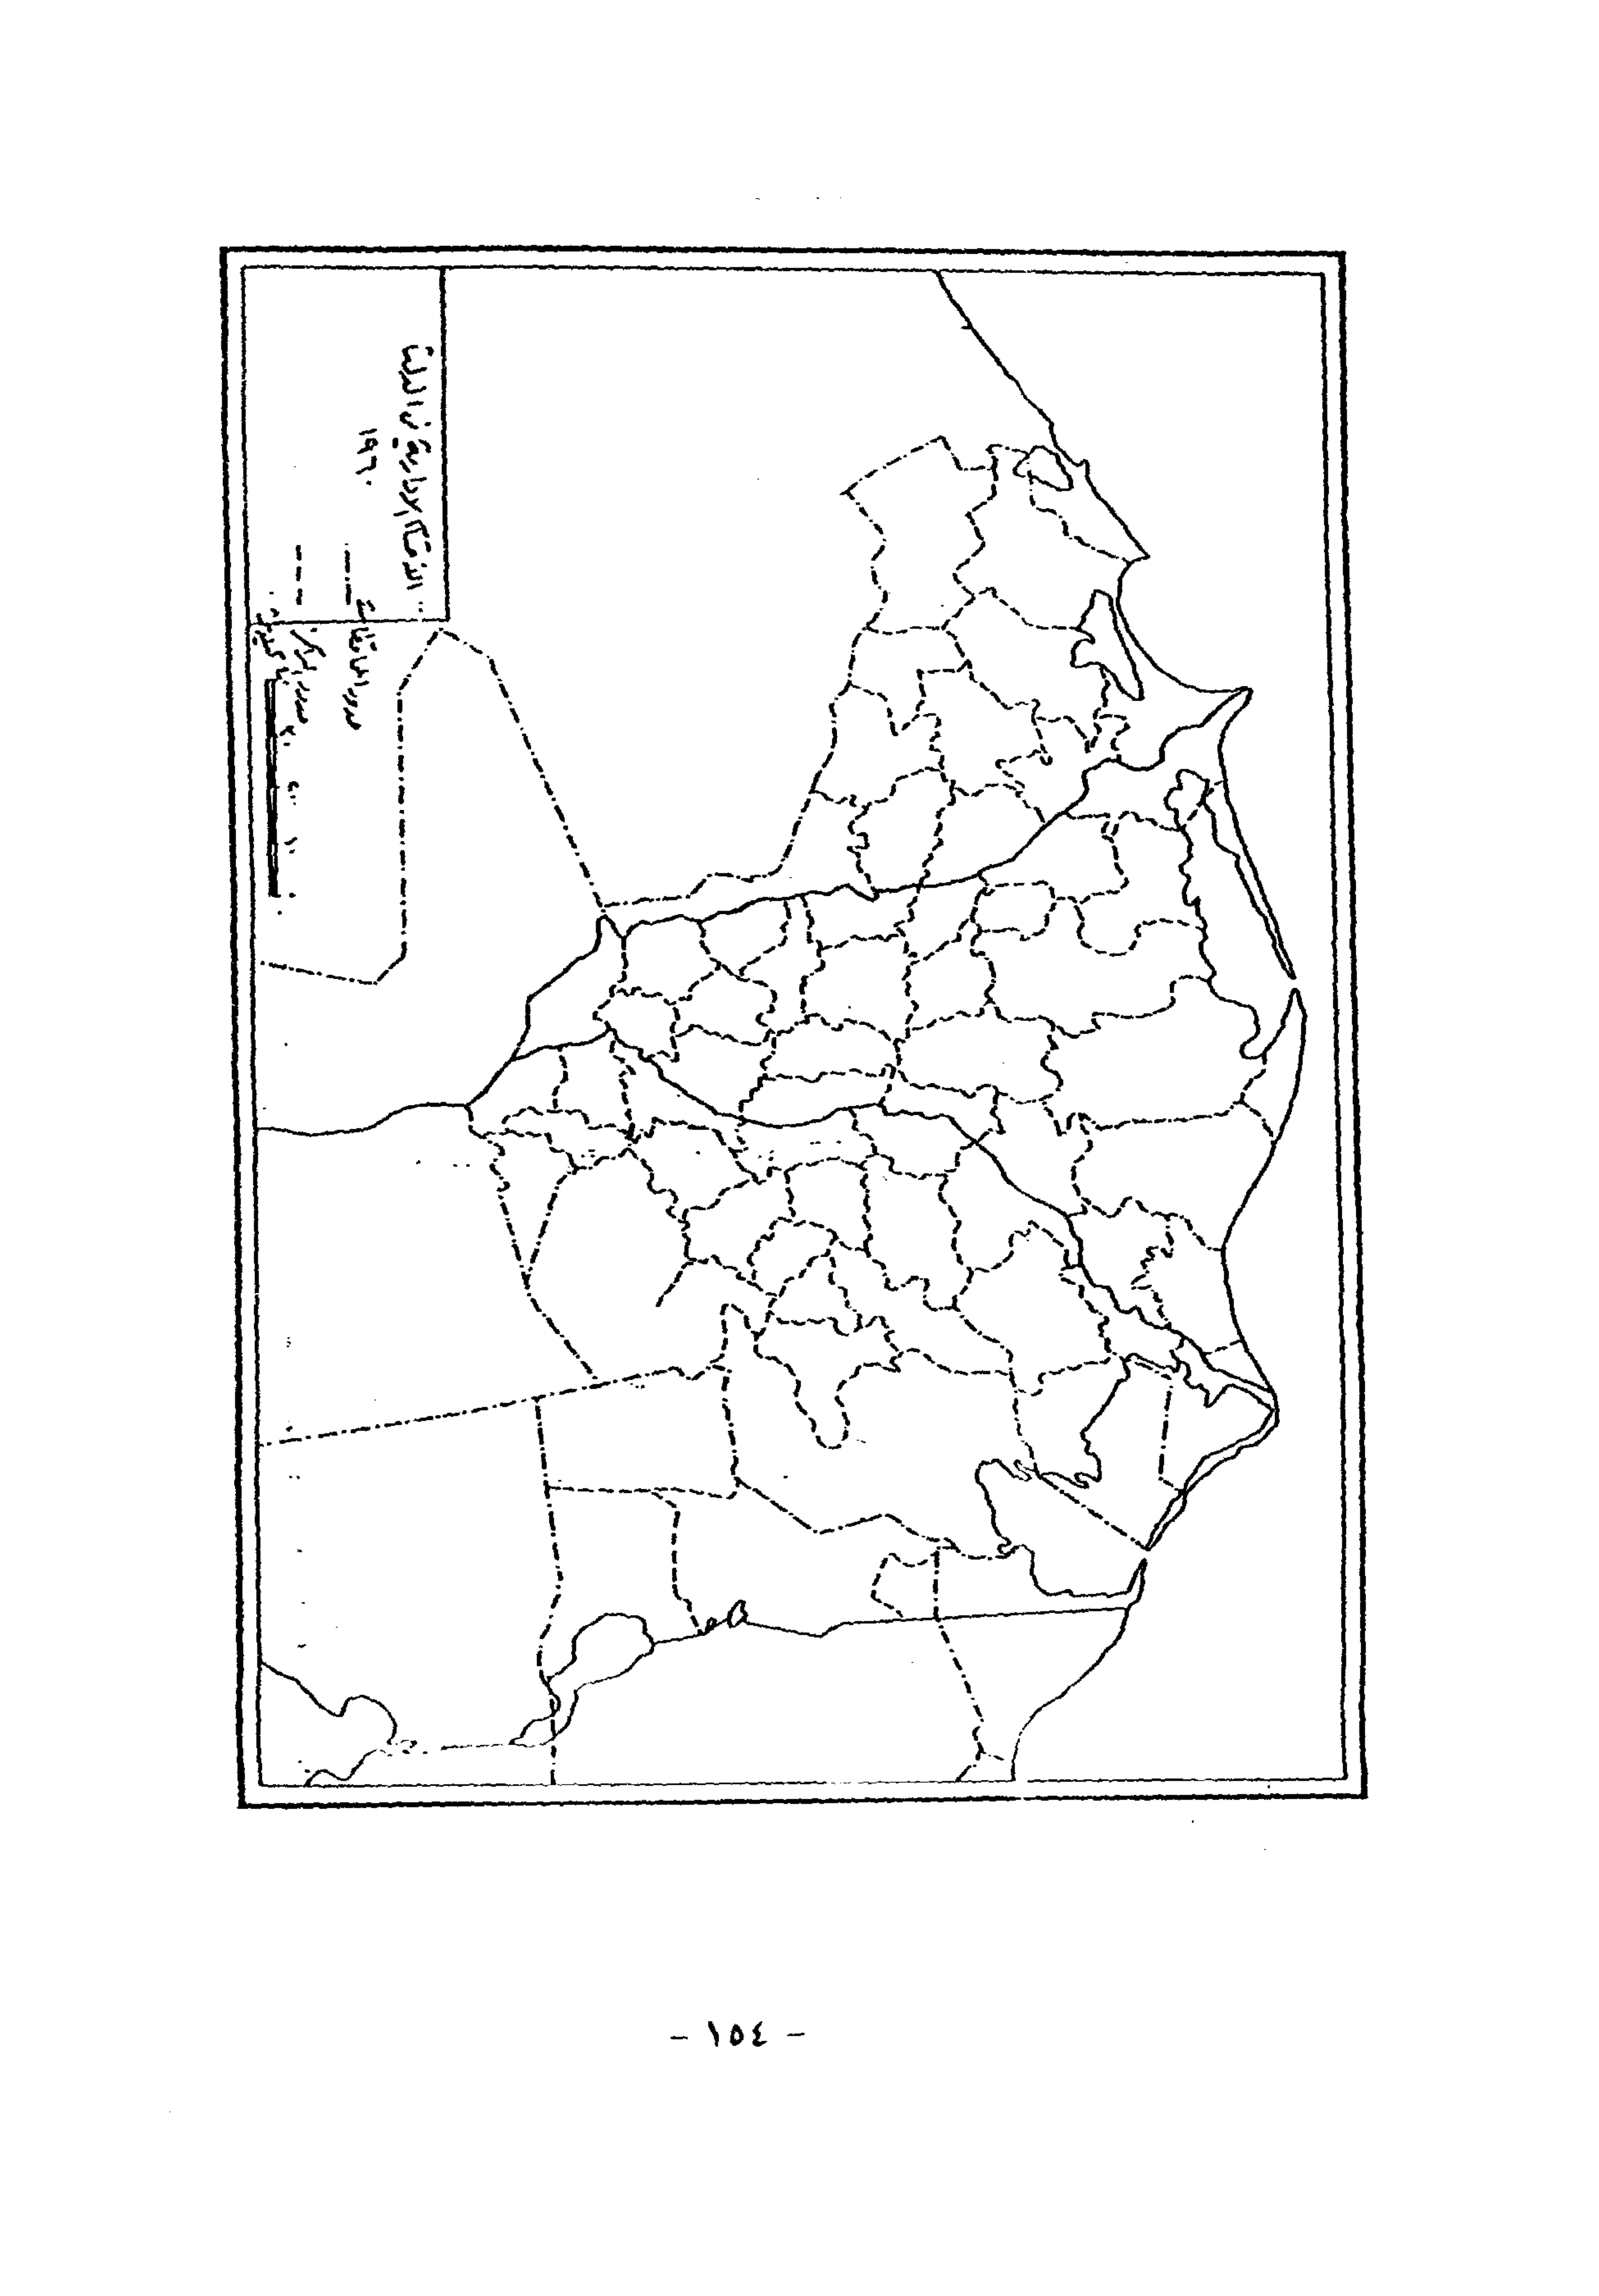 الأقسام الإدارية في الدلتا
١٩٦٠
حدود المحافظات
حدود المراكز
- ١٥٤ -